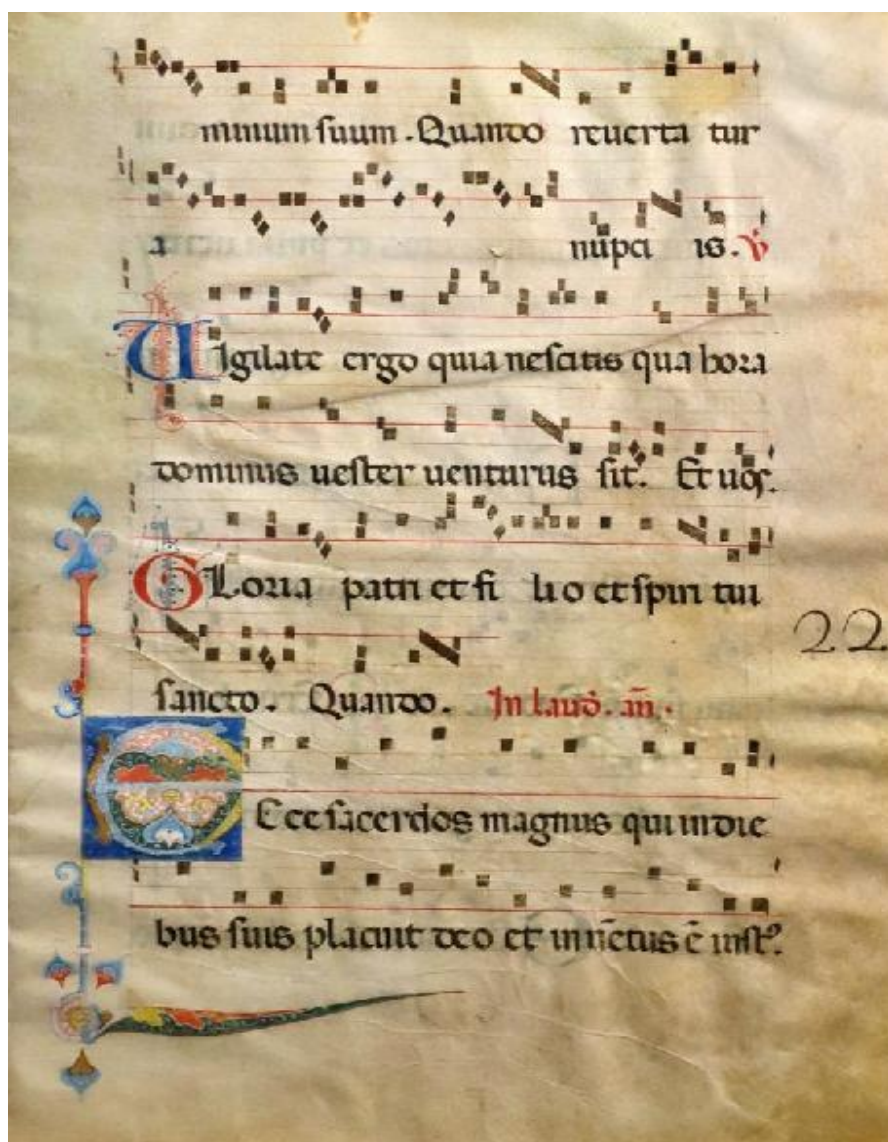 minum suum. Quando reuerta tur
a nupci is. V̇
Uigilate ergo quia nescitis qua hora
dominus uester uenturus sit. Et uos.
GLoria patri et fi li o et spiri tui
22
sancto. Quando. In laud̄. an̄.
Ecce sacerdos magnus qui in die
bus suis placuit deo et inuētus ē iust⁹.